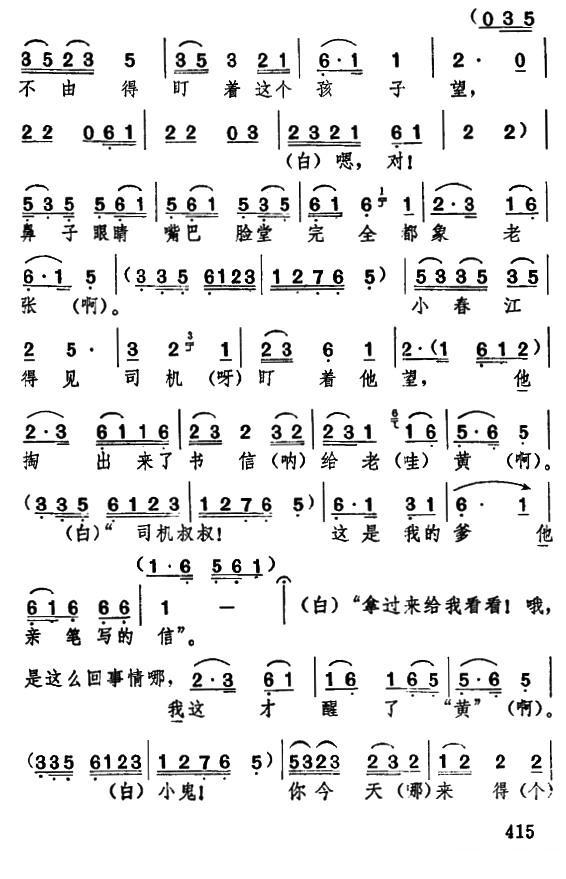 (0 3 5
3 5 2 3 5 | 3 5 3 2 1 | 6 · 1 1 | 2 · 0 |
不 由 得 盯 着 这 个 孩 子 望,
2 2 0 6 1 | 2 2 0 3 | 2 3 2 1 6 1 | 2 2) |
(白)嗯,对!
5 3 5 5 6 1 | 5 6 1 5 3 5 | 6 1 6 1 | 2 · 3 1 6 |
鼻 子 眼睛 嘴巴 脸堂 完 全 都 象 老
6 · 1 5 | (3 3 5 6 1 2 3 | 1 2 7 6 5) | 5 3 3 5 3 5 |
张 (啊)。 小 春 江
2 5 · | 3 2 3 1 | 2 3 6 1 | 2 · (1 6 1 2) |
得 见 司 机 (呀) 盯 着 他 望, 他
2 · 3 6 1 1 6 | 2 3 2 3 2 | 2 3 1 6 1 6 | 5 · 6 5 |
掏 出 来 了 书 信 (呐) 给 老 (哇) 黄 (啊)。
(3 3 5 6 1 2 3 | 1 2 7 6 5) | 6 · 1 3 1 | 6 · 1 |
(白)“司机叔叔! 这 是 我 的 爹 他
(1 · 6 5 6 1)
6 1 6 6 6 | 1 — | (白)“拿过来给我看看!哦,
亲 笔 写 的 信”。
是这么回事情哪, 2 · 3 6 1 | 1 6 1 6 | 5 · 6 5 |
我 这 才 醒 了 “黄” (啊)。
(3 3 5 6 1 2 3 | 1 2 7 6 5) | 5 3 2 3 2 3 2 | 1 2 2 2 |
(白)小鬼! 你 今 天 (哪) 来 得 (个)
415